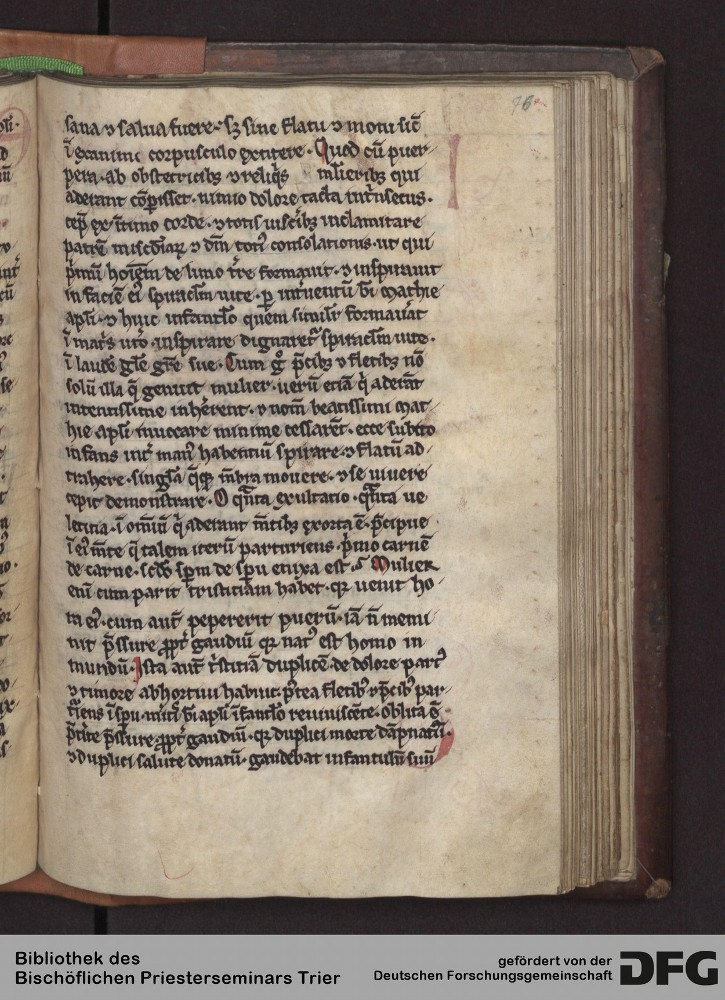 96
sana ⁊ salua fuere. sꝫ sine flatu ⁊ motu sic̄
ī exanimi corpusculo extitere. Quod cū puer
pera. ab obstetricibꝫ ⁊ reliq̄s mlieribꝫ qui
aderant cōpisset. nimio dolore tacta int̄nsecus.
cep̄ ex ītimo corde. ⁊ totis uiscibꝫ inclamitare
patrē misc̄diaꝝ ⁊ dn̄m toti᷒ consolationis. ut qui
p̄mū hoīem de limo t̄re formauit. ⁊ inspirauit
in faciē ei᷒ spiraclm̄ uite. ꝑ int̄uentū bī Mathie
apli. ⁊ huic infantlo quem similit̄ formauāt
ī mat̄s ut̄o. inspirare dignaret̄ spiraclm̄ uite.
ī laudē gle gr̄e sue. Cum gͦ p̄cibꝫ ⁊ fletibꝫ nō
solū illa q̄ genuit mulier. uerū etiā q̄ aderāt
intentissime inhērent. ⁊ nom̄ beatissimi Mat
hie apli inuocare minime cessarēt. ecce subito
infans int̄ man᷒ habentiū spirare. ⁊ flatū ad
trahere. singla q̄qꝫ mb̄ra mouere. ⁊ se uiuere
cepit demonstrare. O qn̄ta exultatio. qn̄ta ue
letitia. ī om̄iū q̄ aderant m̄tibꝫ exorta ē. p̄cipue
ī ei᷒ m̄te q̄ talem iterū parturiens. p̄mo carnē
de carne. scd̄o spm̄ de spū enixa est. Mulier
eni cum parit tristitiam habet. qꝛ uenit ho
ra ei᷒. cum aut̄ pepererit puerū. iā n̄ memi
nit p̄ssure ꝓpt̄ gaudiū qꝛ nat᷒ est homo in
mundū. Ista aut̄ t̄stitiā duplicē. de dolore part᷒
⁊ timore abhortiui habuit. p̄tea fletibꝫ ⁊ p̄cibꝫ par
t̄iens ī spū. m̄iti bī apli īfantlo reuiuiscēte. oblita ē
p̄t̄ite p̄ssure ꝓpt̄ gaudiū. qꝛ duplici morte dāpnatū.
⁊ duplici salute donatū. gaudebat infantulū suū
Bibliothek des
Bischöflichen Priesterseminars Trier
gefördert von der
Deutschen Forschungsgemeinschaft
DFG